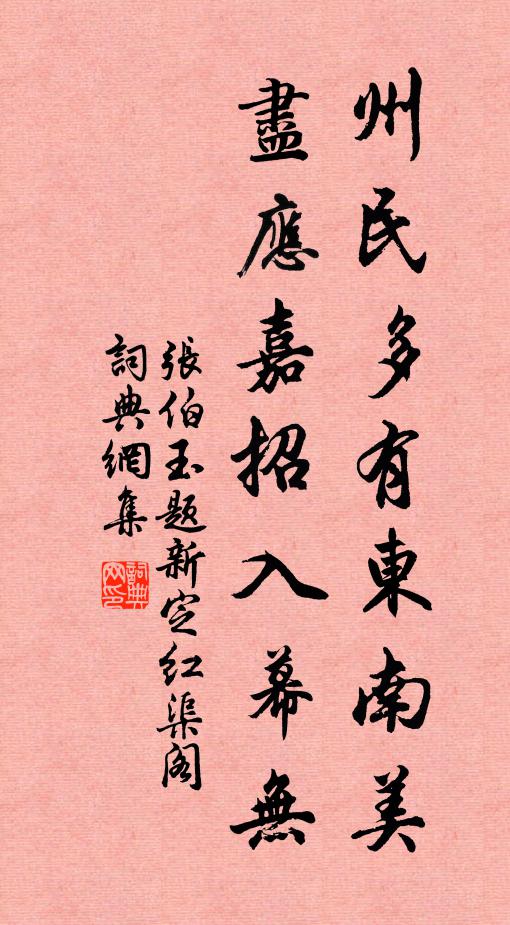 州民多有東南美
盡應嘉招入幕無
張伯玉題新定紅渠阁
詞典網集
詞典网印